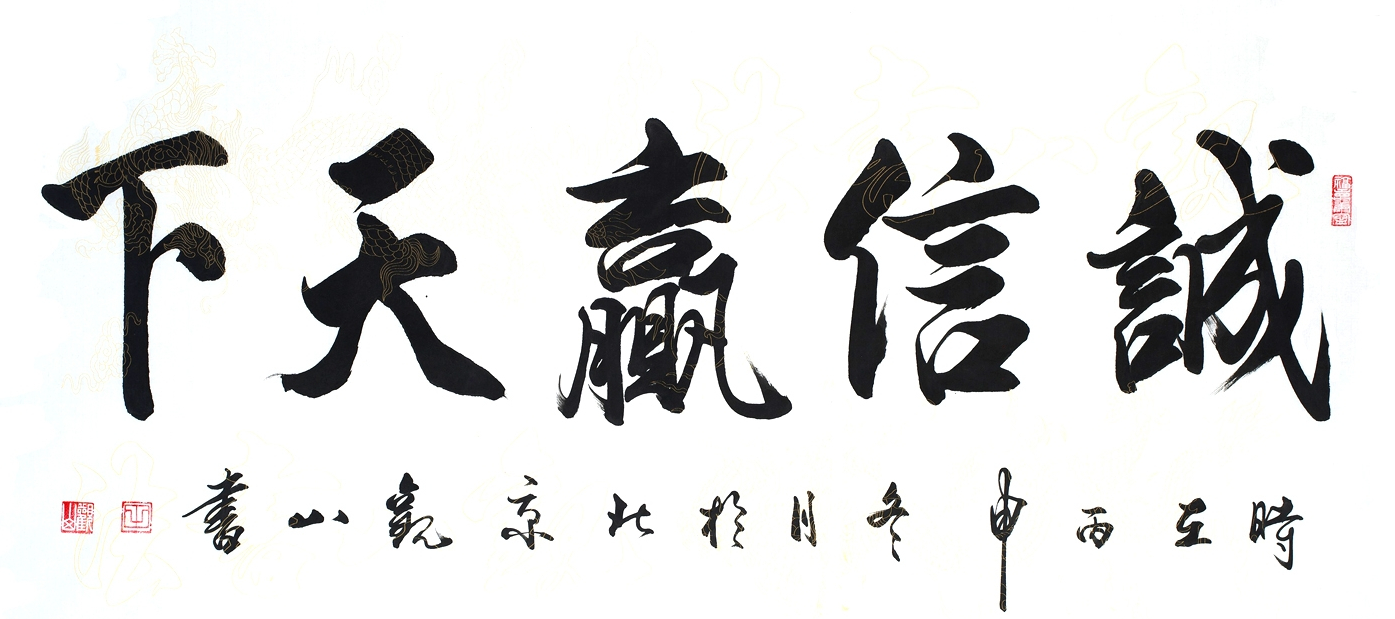 誠信贏天下
時在丙申冬月於北京觀山書
觀山